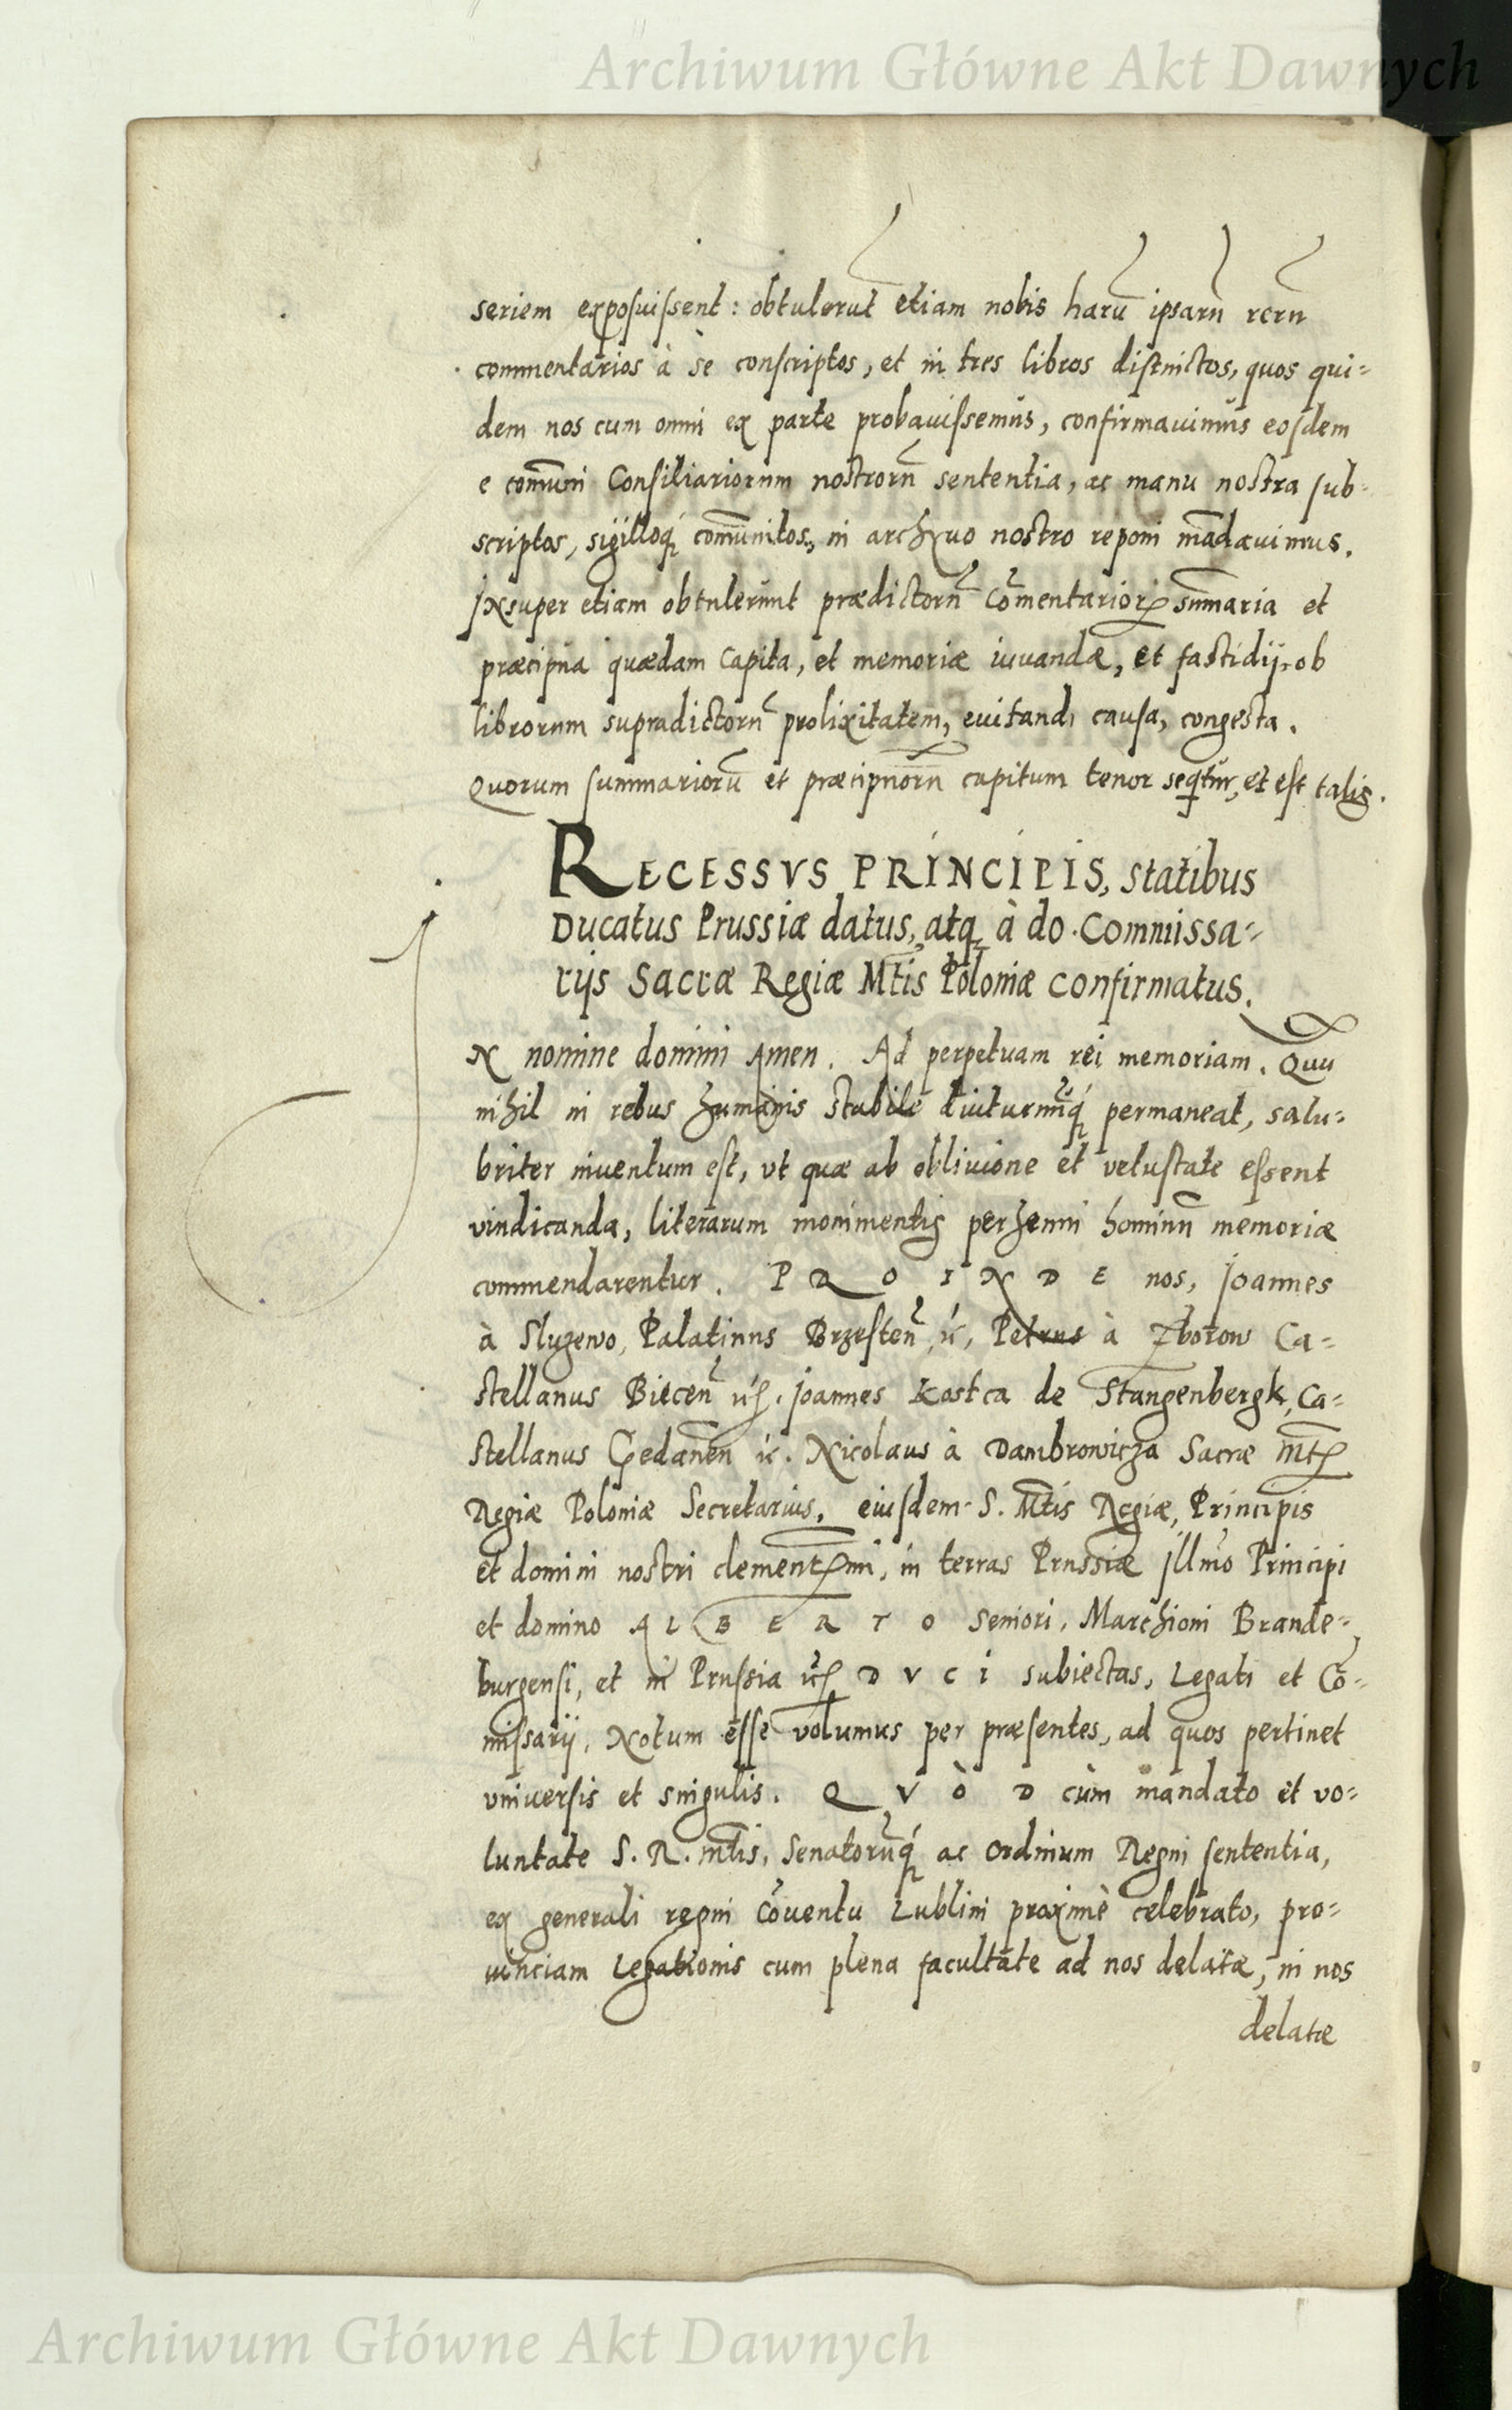 Archiwum Główne Akt Dawnych
seriem exposuissent: obtulerūt etiam nobis harū ipsarū rerū
commentarios à se conscriptos, et in tres libros distinctos, quos qui=
dem nos cum omni ex parte probauissemus, confirmauimus eosdem
e com̄uni Consiliariorum nostrorū sententia, ac manu nostra sub=
scriptos, sigilloq́ȝ com̄unitos, in archyuo nostro reponi mādauimus.
INsuper etiam obtulerunt prædictorū Cōmentarioꝝ sum̄aria et
præcipua quædam Capita, et memoriæ iuuandæ, et fastidij ob
librorum supradictorū prolixitatem, euitandi causa, congesta.
Quorum summariorū et præcipuorū capitum tenor seqtur, et est talis.
RECESSVS PRINCIPIS, statibus
Ducatus Prussiæ datus, atqȝ à do. Commissa=
rijs Sacræ Regiæ Mtis Poloniæ confirmatus.
IN nomine domini Amen. Ad perpetuam rei memoriam. Quū
nihil in rebus humanis stabile diuturnūq́ȝ permaneat, salu=
briter inuentum est, vt quæ ab obliuione et vetustate essent
vindicanda, literarum monimentis perhenni hominū memoriæ
commendarentur. PROINDE nos, Joannes
à Sluzewo, Palatinus Brzesteñ, ꝛc, Petrus à Zborow Ca=
stellanus Bieceñ ꝛc. Joannes Kostca de Stangenbergk, Ca=
stellanus Gedaneñ ꝛc. Nicolaus à Dambrowicza Sacræ Mtis
Regiæ Poloniæ Secretarius, eiusdem S. Mtis Regiæ, Principis
et domini nostri clementꝭmi, in terras Prussiæ Jllmo Principi
et domino ALBERTO Seniori, Marchioni Brande=
burgensi, et in Prussia ꝛc DVCI subiectas, Legati et Cō=
missarij, Notum esse volumus per præsentes, ad quos pertinet
vniuersis et singulis. QVÒD cùm mandato et vo=
luntate S. R. Mtis, Senatorūq́ȝ ac Ordinum Regni sententia,
ex generali regni Cōuentu Lublini proximè celebrato, pro=
uinciam Legationis cum plena facultate ad nos delatæ, in nos
delatæ
Archiwum Główne Akt Dawnych